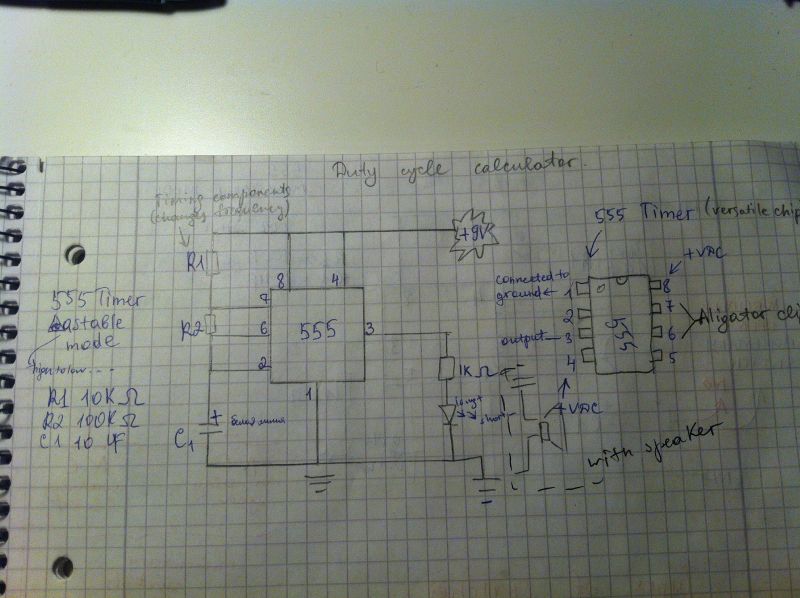 Duty cycle calculator.
Timing components
(changes frequency)
R1
+9V
8
4
7
R2
6
555
3
2
1
1KΩ
C1
+
short
555 Timer
astable
mode
R1 10KΩ
R2 100KΩ
C1 10 uF
555 Timer (versatile chip
connected to
ground
+VDC
1
8
2
7
output
3
555
6
Aligator cli
4
5
+VDC
with speaker